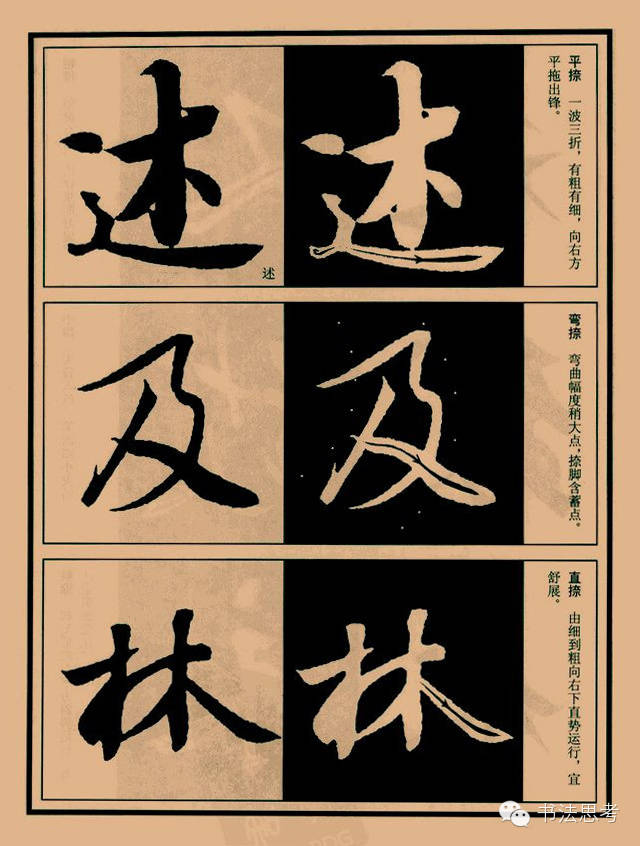 述
述
述
平捺　一波三折，有粗有细，向右方
平拖出锋。
及
及
弯捺　弯曲幅度稍大点，捺脚含蓄点。
林
林
直捺　由细到粗向右下直势运行，宜
舒展。
书法思考